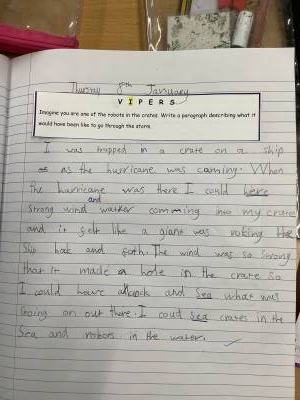 Thursday 8th January
VIPERS
Imagine you are one of the robots in the crates. Write a paragraph describing what it
would have been like to go through the storm.
I was trapped in a crate on a ship
as the hurricane was comming. When
the hurricane was there I could here
and
strong wind water comming into my crate
and it felt like a giant was roking the
Ship back and forth. The wind was so strong
that it made a hole in the crate so
I could have a look and Sea what was
going on out there. I coud sea crates in the
Sea and robots in the water.